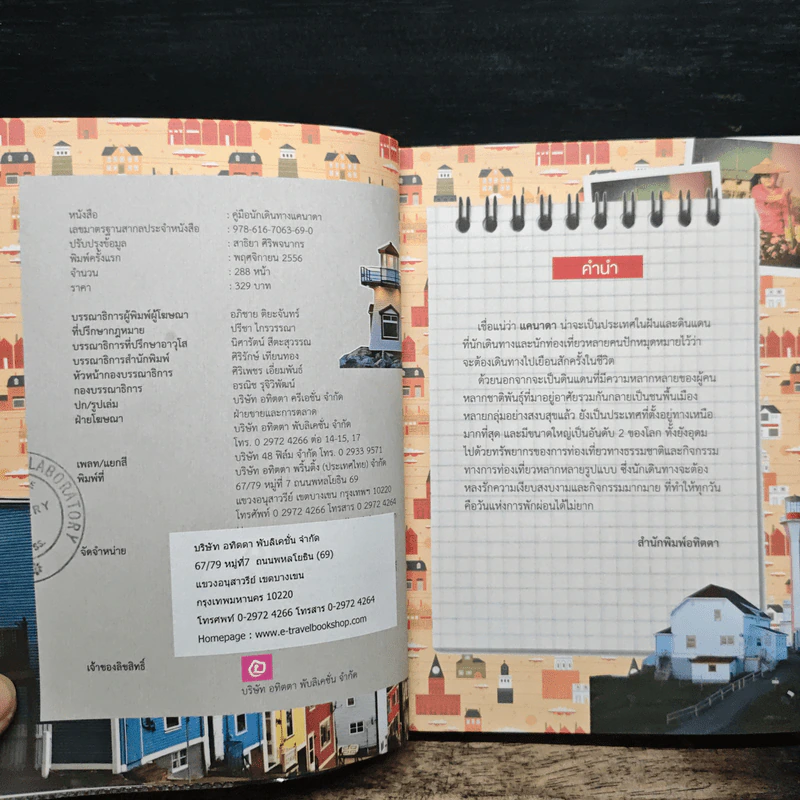 หนังสือ : คู่มือนักเดินทางแคนาดา
เลขมาตรฐานสากลประจำหนังสือ : 978-616-7063-69-0
ปรับปรุงข้อมูล : สาธิยา ศิริพจนากร
พิมพ์ครั้งแรก : พฤศจิกายน 2556
จำนวน : 288 หน้า
ราคา : 329 บาท
บรรณาธิการผู้พิมพ์ผู้โฆษณา อภิชาย ติยะจันทร์
ที่ปรึกษากฎหมาย ปรีชา ไกรวรรณา
บรรณาธิการที่ปรึกษาอาวุโส นิศารัตน์ สีตะสุวรรณ
บรรณาธิการสำนักพิมพ์ ศิริรักษ์ เทียนทอง
หัวหน้ากองบรรณาธิการ ศิริเพชร เอี่ยมพันธ์
กองบรรณาธิการ อรณิช รุจิวิพัฒน์
ปก/รูปเล่ม บริษัท อทิตตา ครีเอชั่น จำกัด
ฝ่ายโฆษณา ฝ่ายขายและการตลาด
บริษัท อทิตตา พับลิเคชั่น จำกัด
โทร. 0 2972 4266 ต่อ 14-15, 17
เพลท/แยกสี บริษัท 48 ฟิล์ม จำกัด โทร. 0 2933 9571
พิมพ์ที่ บริษัท อทิตตา พริ้นติ้ง (ประเทศไทย) จำกัด
67/79 หมู่ที่ 7 ถนนพหลโยธิน 69
แขวงอนุสาวรีย์ เขตบางเขน กรุงเทพฯ 10220
โทรศัพท์ 0 2972 4266 โทรสาร 0 2972 4264
จัดจำหน่าย บริษัท อทิตตา พับลิเคชั่น จำกัด
67/79 หมู่ที่7 ถนนพหลโยธิน (69)
แขวงอนุสาวรีย์ เขตบางเขน
กรุงเทพมหานคร 10220
โทรศัพท์ 0-2972 4266 โทรสาร 0-2972 4264
Homepage : www.e-travelbookshop.com
เจ้าของลิขสิทธิ์
บริษัท อทิตตา พับลิเคชั่น จำกัด
คำนำ
เชื่อแน่ว่า แคนาดา น่าจะเป็นประเทศในฝันและดินแดน
ที่นักเดินทางและนักท่องเที่ยวหลายคนปักหมุดหมายไว้ว่า
จะต้องเดินทางไปเยือนสักครั้งในชีวิต
ด้วยนอกจากจะเป็นดินแดนที่มีความหลากหลายของผู้คน
หลากชาติพันธุ์ที่มาอยู่อาศัยรวมกันกลายเป็นชนพื้นเมือง
หลายกลุ่มอย่างสงบสุขแล้ว ยังเป็นประเทศที่ตั้งอยู่ทางเหนือ
มากที่สุด และมีขนาดใหญ่เป็นอันดับ 2 ของโลก ทั้งยังอุดม
ไปด้วยทรัพยากรของการท่องเที่ยวทางธรรมชาติและกิจกรรม
ทางการท่องเที่ยวหลากหลายรูปแบบ ซึ่งนักเดินทางจะต้อง
หลงรักความเงียบสงบงามและกิจกรรมมากมาย ที่ทำให้ทุกวัน
คือวันแห่งการพักผ่อนได้ไม่ยาก
สำนักพิมพ์อทิตตา